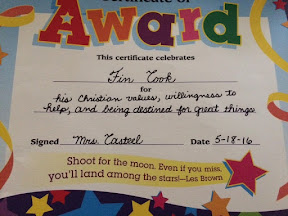 Certificate of
Award
This certificate celebrates
Fin Cook
for
his Christian values, willingness to
help, and being destined for great things
Signed Mrs. Casteel Date 5-18-16
Shoot for the moon. Even if you miss,
you'll land among the stars!—Les Brown